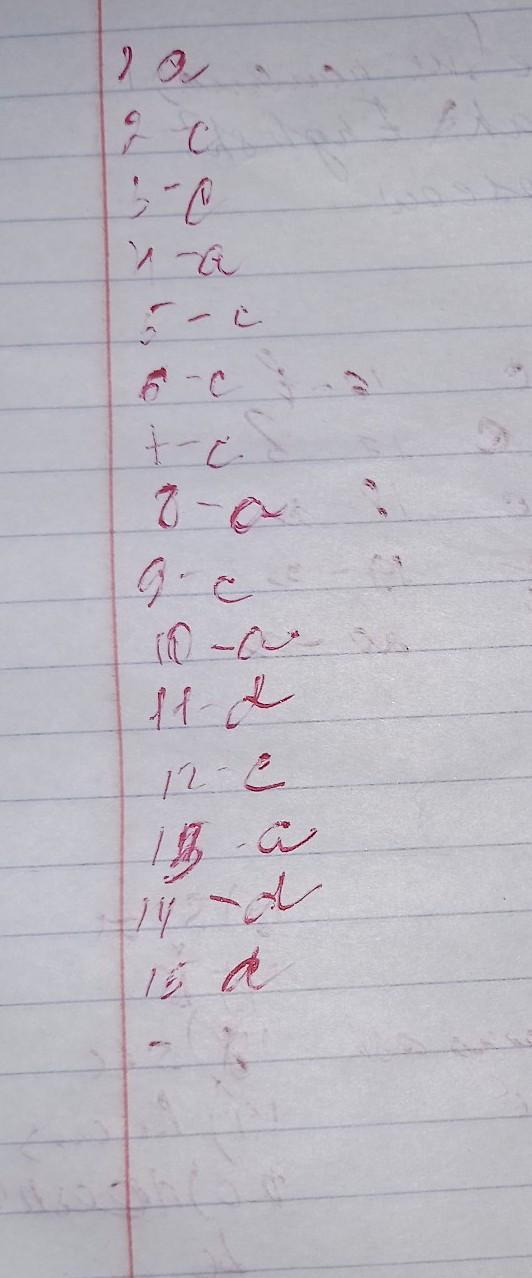 1 a
2 - c
3 - c
4 - a
5 - c
6 - c
7 - c
8 - a
9 - c
10 - a
11 - d
12 - c
13 - a
14 - d
15 d